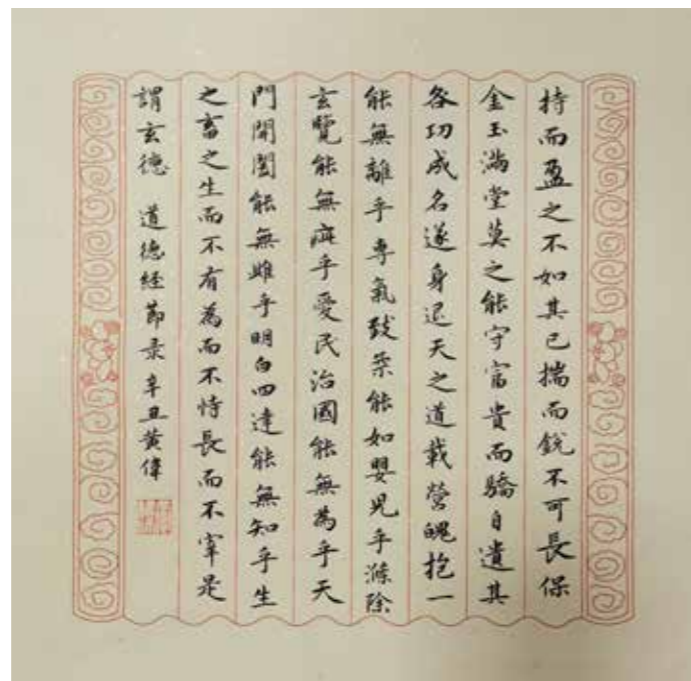 持而盈之不如其已揣而銳不可長保
金玉滿堂莫之能守富貴而驕自遺其
各功成名遂身退天之道載營魄抱一
能無離乎專氣致柔能如嬰兒乎滌除
玄覽能無疵乎愛民治國能無為乎天
門開闔能無雌乎明白四達能無知乎生
之畜之生而不有為而不恃長而不宰是
謂玄德 道德經節录 辛丑黄偉